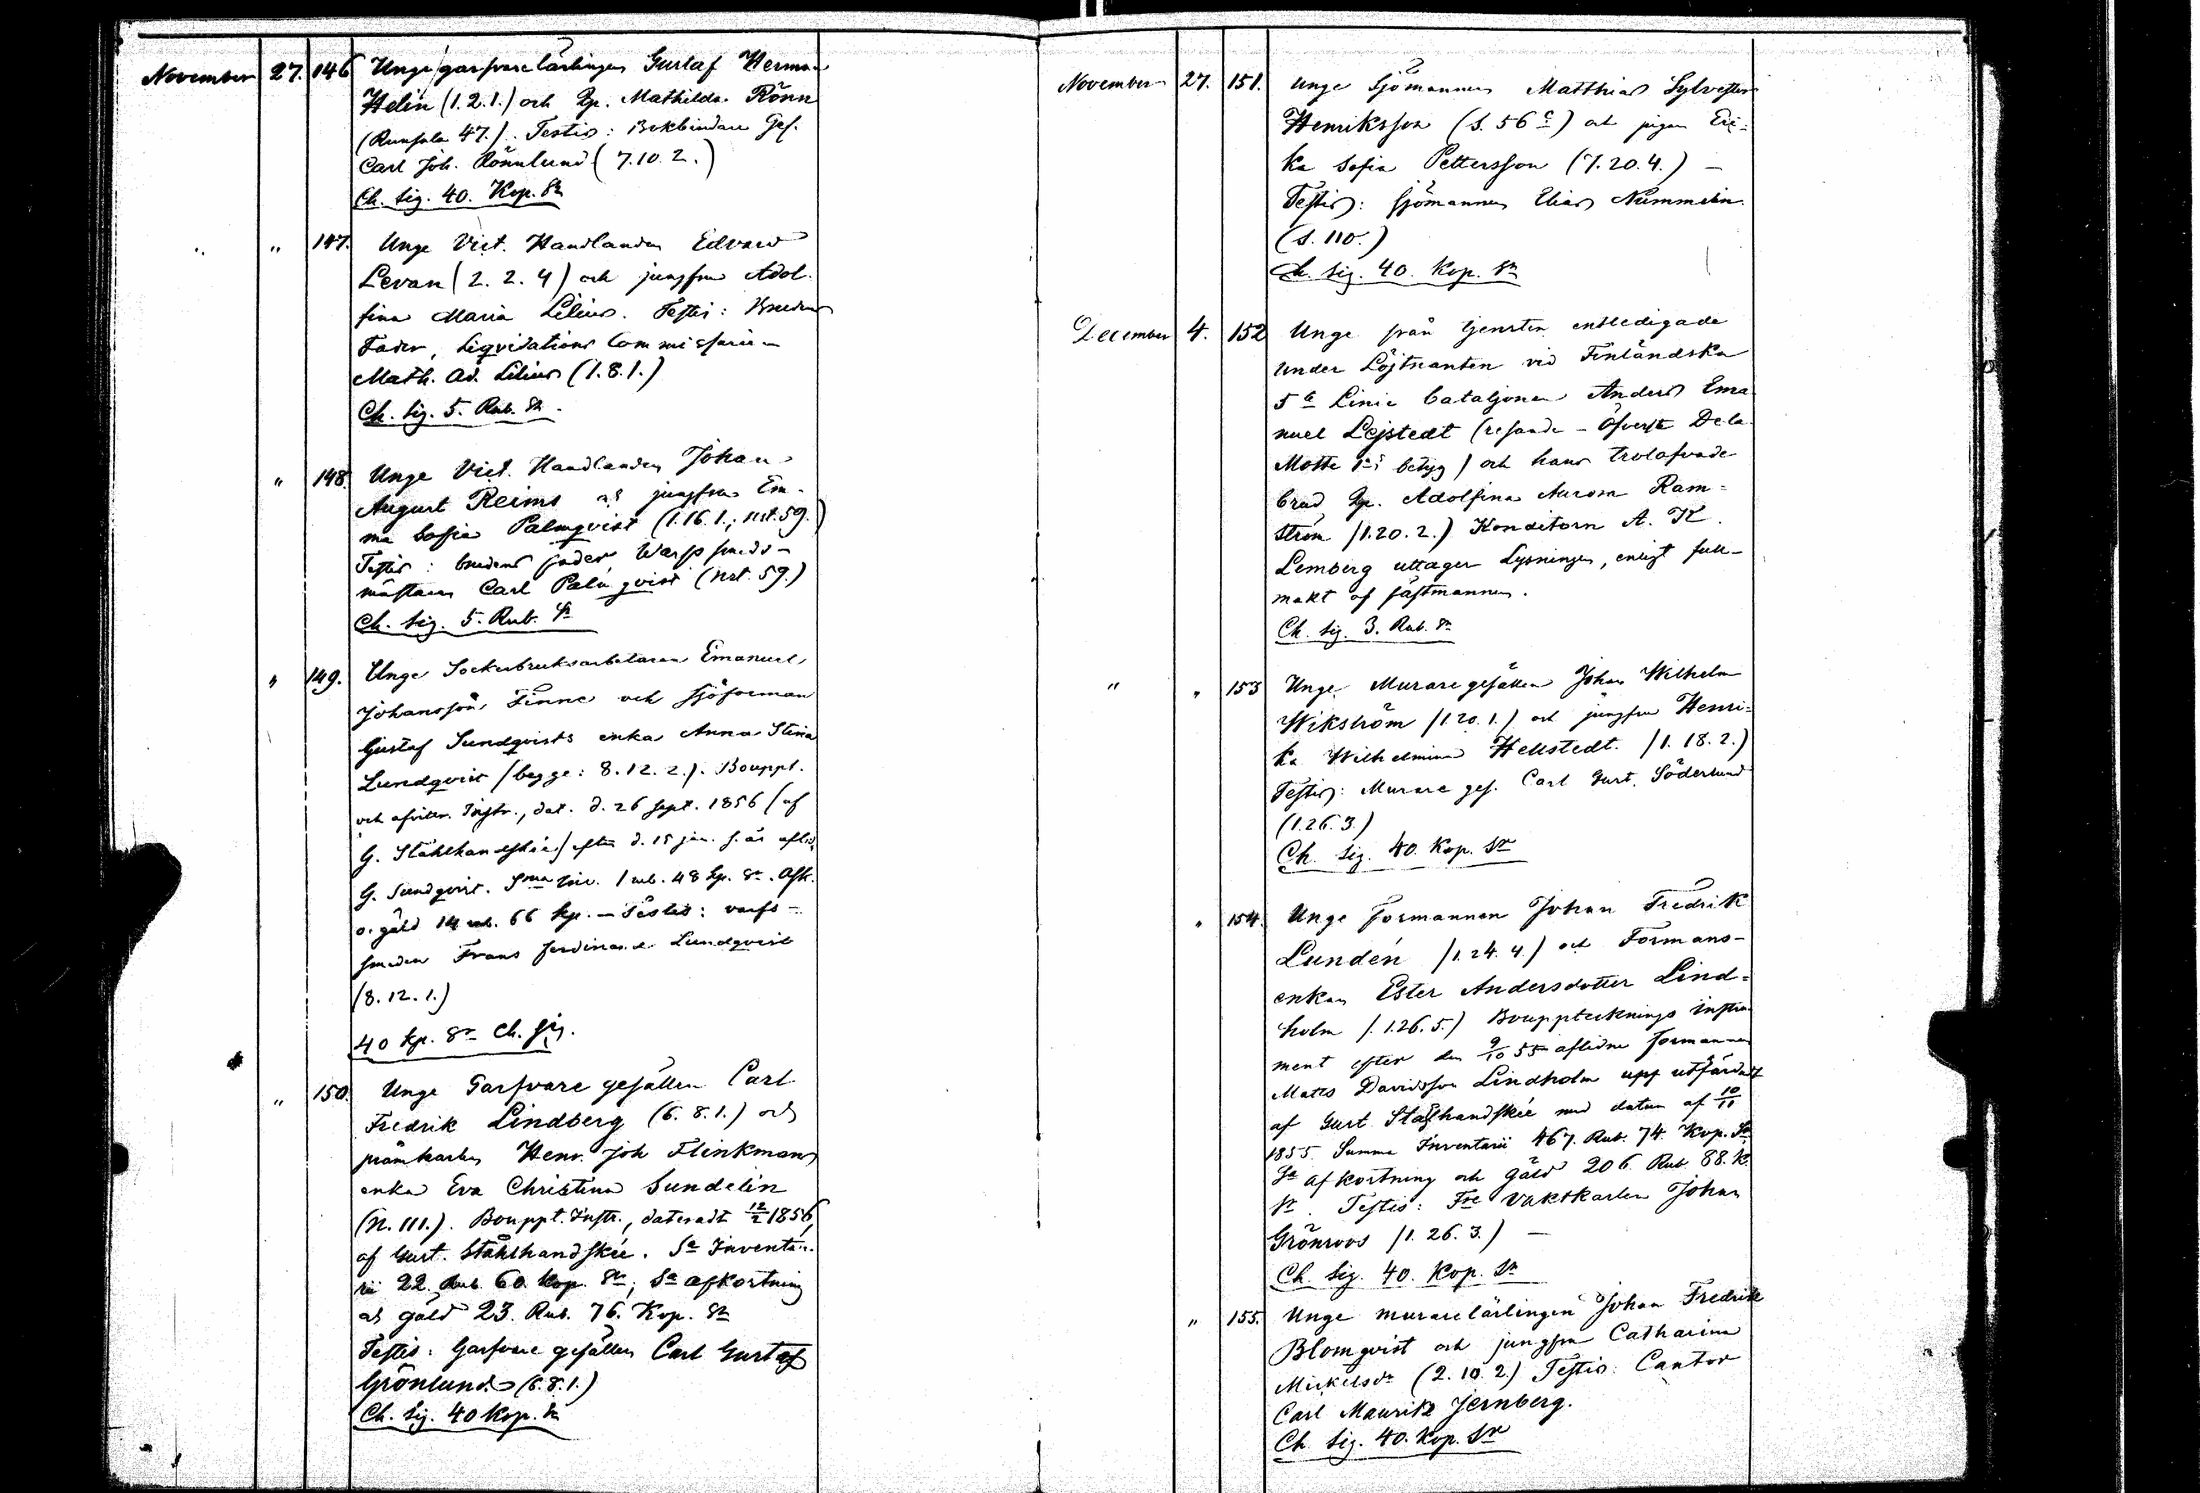 November 27. 146 Unge garfvarelärlingen Gustaf Herman
Helin (1.2.1.) och Mathilda Rönn
(Runsala 47.). Testis: Bokbindare Ges.
Carl Joh. Rönnlund (7.10.2.)
Ch. Sig. 40. Kop. Sr
" 147. Unge Vict. Handlanden Edvard
Levan (2.2.4) och jungfru Adol-
fina Maria Lilius. Testis: Brudens
Fader, Liqvidations Commissarien
Math. Ad. Lilius (1.8.1.)
Ch. Sig. 5. Rub. Sr.
" 148. Unge Vict. Handlanden Johan
August Reims och jungfrun Em-
ma Sofia Palmqvist (1.16.1.; nrt. 59.)
Testis: brudens fader Warfssmeds-
mästaren Carl Palmqvist (nrt. 59.)
Ch. Sig. 5. Rub. Sr
" 149. Unge Sockerbruksarbetaren Emanuel
Johansson Finne och sjöforman
Gustaf Sundqvists enka Anna Stina
Lundqvist (begge: 8.12.2.). Bouppt.
och Instr., dat. d. 26 Sept. 1856 (af
G. Stålhandskie) efter d. 15 jan. s. år aflid.
G. Sundqvist. Sma Inv. 1 rub. 48 kp. Sr. Afk.
o. gäld 14 rub. 66 kp. – Testis: varfs-
smeden Frans Ferdinand Lundqvist
(8.12.1.)
40 kp. Sr Ch. sig.
" 150. Unge Garfvare gesällen Carl
Fredrik Lindberg (6.8.1.) och
pråmkarlen Henr. Joh Flinkmans
enka Eva Christina Sundelin
(N. 111.). Bouppt. Instr., dateradt 12/2 1856,
af Gust. Stålhandskie. Sa Inventa-
rii 22. Rub. 60. Kop. Sr; Sa afkortning
och gäld 23. Rub. 76. Kop. Sr
Testis: Garfvare gesällen Carl Gustaf
Grönlund (6.8.1.)
Ch. Sig. 40 Kop. Sr
November 27. 151. Unge Sjömannen Matthias Sylvester
Henriksson (S. 56 c) och pigan Eri-
ka Sofia Pettersson (7.20.4.) –
Testis: Sjömannen Elias Nummelin
(S. 110.)
Ch. Sig. 40. Kop. Sr
December 4. 152 Unge från tjensten entledigade
Under Löjtnanten vid Finländska
5te Linie bataljonen Anders Ema-
nuel Lejstedt (resande – Öfverste Dela
Motte betyg) och hans trolofvade
brud Adolfina Aurora Ram-
ström (1.20.2.) Konditorn A. K.
Lemberg uttager Lysningen, enligt full-
makt af fästmannen.
Ch. Sig. 3. Rub. Sr
" " 153 Unge Murare gesällen Johan Wilhelm
Wikström (1.20.1.) och jungfru Henri-
ka Wilhelmina Hellstedt. (1.18.2.)
Testis: Murare ges. Carl Gust. Söderlund
(1.26.3.)
Ch. Sig. 40. Kop. Sr
" 154. Unge Formannen Johan Fredrik
Lundén (1.24.4) och Formans-
enkan Ester Andersdotter Lind-
holm (1.26.5.) Bouppteknings instru-
ment efter den 9/10 55 aflidne formannen
Matts Davidsson Lindholm upp utfärdadt
af Gust. Stålhandskie med datum af 10/11
1855. Summa Inventarii 467. Rub. 74. Kop. Sr.
Sa afkortning och gäld 206. Rub 88. K.
Sr. Testis: Vaktkarlen Johan
Grönroos (1.26.3.) –
Ch. Sig. 40. Kop. Sr
" 155. Unge murarelärlingen Johan Fredrik
Blomqvist och jungfru Catharina
Mickelsdr (2.10.2.) Testis: Cantor
Carl Mauritz Jernberg.
Ch. Sig. 40. Kop. Sr